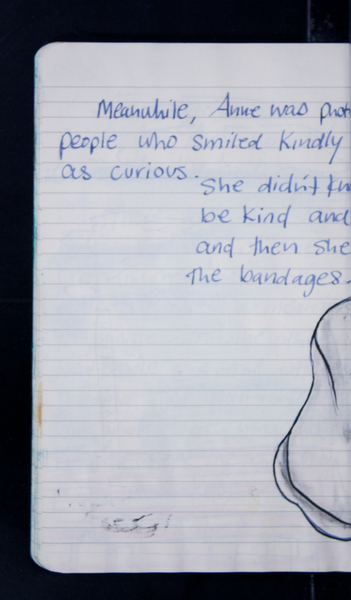 Meanwhile, Anne was
people who smiled kindly
as curious.
She didn't
be kind and
and then she
the bandages.